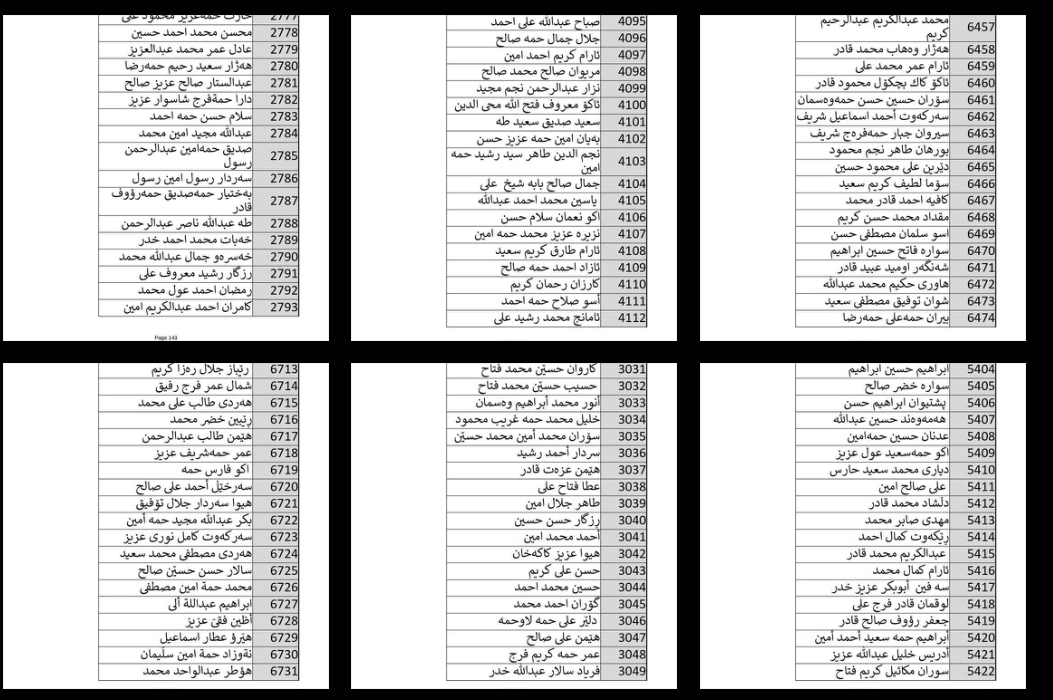 2777 حمەعزیز محمود علی
2778 محسن محمد احمد حسین
2779 عادل عمر محمد عبدالعزیز
2780 هەژار سعید رحیم حمەرضا
2781 عبدالستار صالح عزیز صالح
2782 دارا حمةفرج شاسوار عزیز
2783 سلام حسن حمه احمد
2784 عبدالله مجید امین محمد
2785 صدیق حمەامین عبدالرحمن
رسول
2786 سەردار رسول امین رسول
2787 بەختیار حمەصدیق حمەرؤوف
قادر
2788 طه عبدالله ناصر عبدالرحمن
2789 خەبات محمد احمد خدر
2790 خەسرەو جمال عبدالله محمد
2791 رزگار رشید معروف علی
2792 رمضان احمد عول محمد
2793 کامران احمد عبدالکریم امین
Page 143
4095 صباح عبدالله علی احمد
4096 جلال جمال حمه صالح
4097 ئارام کریم احمد امین
4098 مریوان صالح محمد صالح
4099 نزار عبدالرحمن نجم مجید
4100 ئاکۆ معروف فتح الله محی الدین
4101 سعید صدیق سعید طه
4102 بەیان امین حمه عزیز حسن
4103 نجم الدین طاهر سید رشید حمه
امین
4104 جمال صالح بابه شیخ علی
4105 یاسین محمد احمد عبدالله
4106 اکو نعمان سلام حسن
4107 نزیره عزیز محمد حمه امین
4108 ئارام طارق کریم سعید
4109 ئازاد احمد حمه صالح
4110 کارزان رحمان کریم
4111 آسو صلاح حمه احمد
4112 ئامانج محمد رشید علی
6457 محمد عبدالکریم عبدالرحیم
کریم
6458 هەژار وەهاب محمد قادر
6459 ئارام عمر محمد علی
6460 ئاکۆ کاك بچکۆل محمود قادر
6461 سۆران حسین حسن حمەوەسمان
6462 سەرکەوت أحمد اسماعیل شریف
6463 سیروان جبار حمەفرەج شریف
6464 بورهان طاهر نجم محمود
6465 دێرین علی محمود حسین
6466 سۆما لطیف کریم سعید
6467 کافیه احمد قادر محمد
6468 مقداد محمد حسن کریم
6469 اسو سلمان مصطفی حسن
6470 سواره فاتح حسین ابراهیم
6471 شەنگەر اومید عبید قادر
6472 هاوری حکیم محمد عبدالله
6473 شوان توفیق مصطفی سعید
6474 بیران حمەعلی حمەرضا
6713 ڕێباز جلال رەزا کریم
6714 شمال عمر فرج رفیق
6715 هەردی طالب علی محمد
6716 ڕێبین خضر محمد
6717 هێمن طالب عبدالرحمن
6718 عمر حمەشریف عزیز
6719 اکو فارس حمه
6720 سەرخێل أحمد علی صالح
6721 هیوا سەردار جلال تۆفیق
6722 بکر عبدالله مجید حمه أمین
6723 سەرکەوت کامل نوری عزیز
6724 هەردی مصطفی محمد سعید
6725 سالار حسن حسێن صالح
6726 محمد حمة امین مصطفی
6727 ابراهیم عبداللة ألی
6728 أظین فقێ عزیز
6729 هێرۆ عطار اسماعیل
6730 نەوزاد حمة امین سلێمان
6731 هۆطر عبدالواحد محمد
3031 کاروان حسێن محمد فتاح
3032 حسیب حسێن محمد فتاح
3033 أنور محمد أبراهیم وەسمان
3034 خلیل محمد حمه غریب محمود
3035 سۆران محمد أمین محمد حسێن
3036 سردار أحمد رشید
3037 هێمن عزەت قادر
3038 عطا فتاح علی
3039 طاهر جلال امین
3040 ڕزگار حسن حسین
3041 أحمد محمد امین
3042 هیوا عزیز کاکەخان
3043 حسن علی کریم
3044 حسین محمد احمد
3045 گۆران احمد محمد
3046 دلێر علی حمه لاوحمه
3047 هێمن علی صالح
3048 عمر حمه کریم فرج
3049 فریاد سالار عبدالله خدر
5404 ابراهیم حسین ابراهیم
5405 سواره خضر صالح
5406 پشتیوان ابراهیم حسن
5407 هەمەوەند حسین عبدالله
5408 عدنان حسین حمەامین
5409 اکو حمەسعید عول عزیز
5410 دیاری محمد سعید حارس
5411 علی صالح امین
5412 دڵشاد محمد قادر
5413 مهدی صابر محمد
5414 ڕێکەوت کمال احمد
5415 عبدالکریم محمد قادر
5416 ئارام کمال محمد
5417 سه فین أبوبکر عزیز خدر
5418 لوقمان قادر فرج علی
5419 جعفر رؤوف صالح قادر
5420 أبراهیم حمه سعید أحمد أمین
5421 أدریس خلیل عبدالله عزیز
5422 سوران مکائیل کریم فتاح